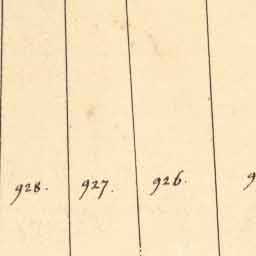 928. 927. 926. 9